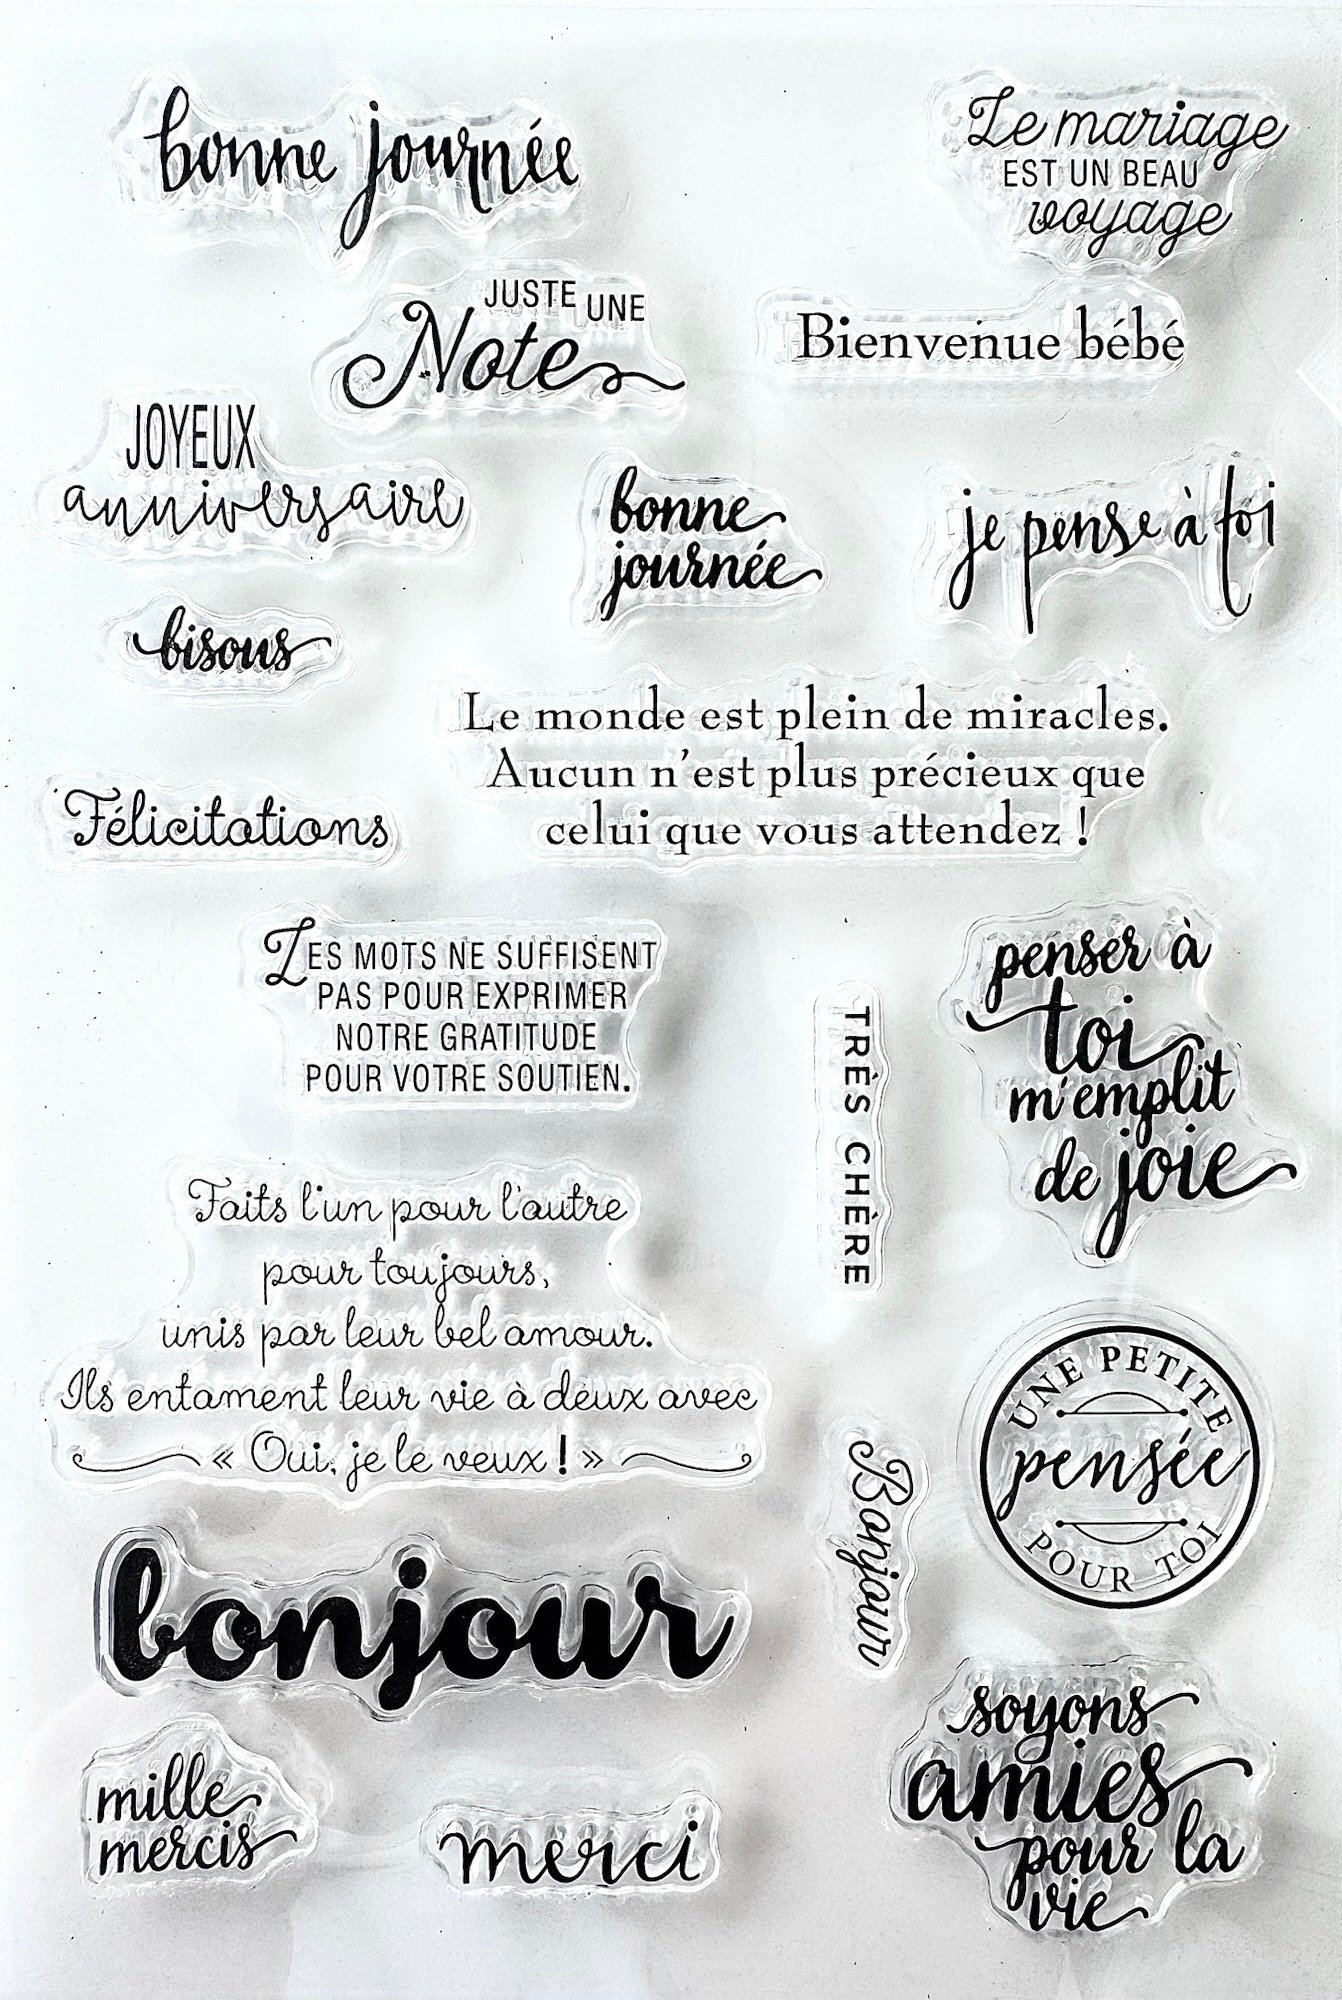 bonne journée
Le mariage
EST UN BEAU
voyage
JUSTE UNE
Note
Bienvenue bébé
JOYEUX
anniversaire
bonne
journée
je pense à toi
bisous
Le monde est plein de miracles.
Aucun n'est plus précieux que
celui que vous attendez !
Félicitations
LES MOTS NE SUFFISENT
PAS POUR EXPRIMER
NOTRE GRATITUDE
POUR VOTRE SOUTIEN.
TRÈS CHÈRE
penser à
toi
m'emplit
de joie
Faits l'un pour l'autre
pour toujours,
unis par leur bel amour.
Ils entament leur vie à deux avec
« Oui, je le veux ! »
UNE PETITE
pensée
POUR TOI
Bonjour
bonjour
soyons
amies
pour la
vie
mille
mercis
merci